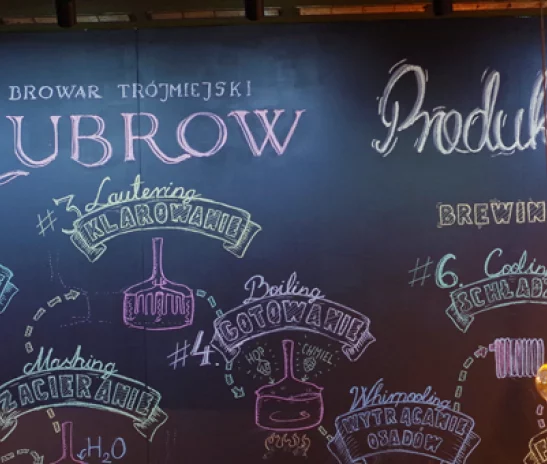 BROWAR TRÓJMIEJSKI
LUBROW
Produk
BREWIN
#3 Lautering
KLAROWANIE
#6. Cooling
SCHŁADZ
Boiling
#4. GOTOWANIE
HOP CHMIEL
Mashing
ZACIERANIE
H2O
Whirpooling
WYTRĄCANIE
OSADÓW